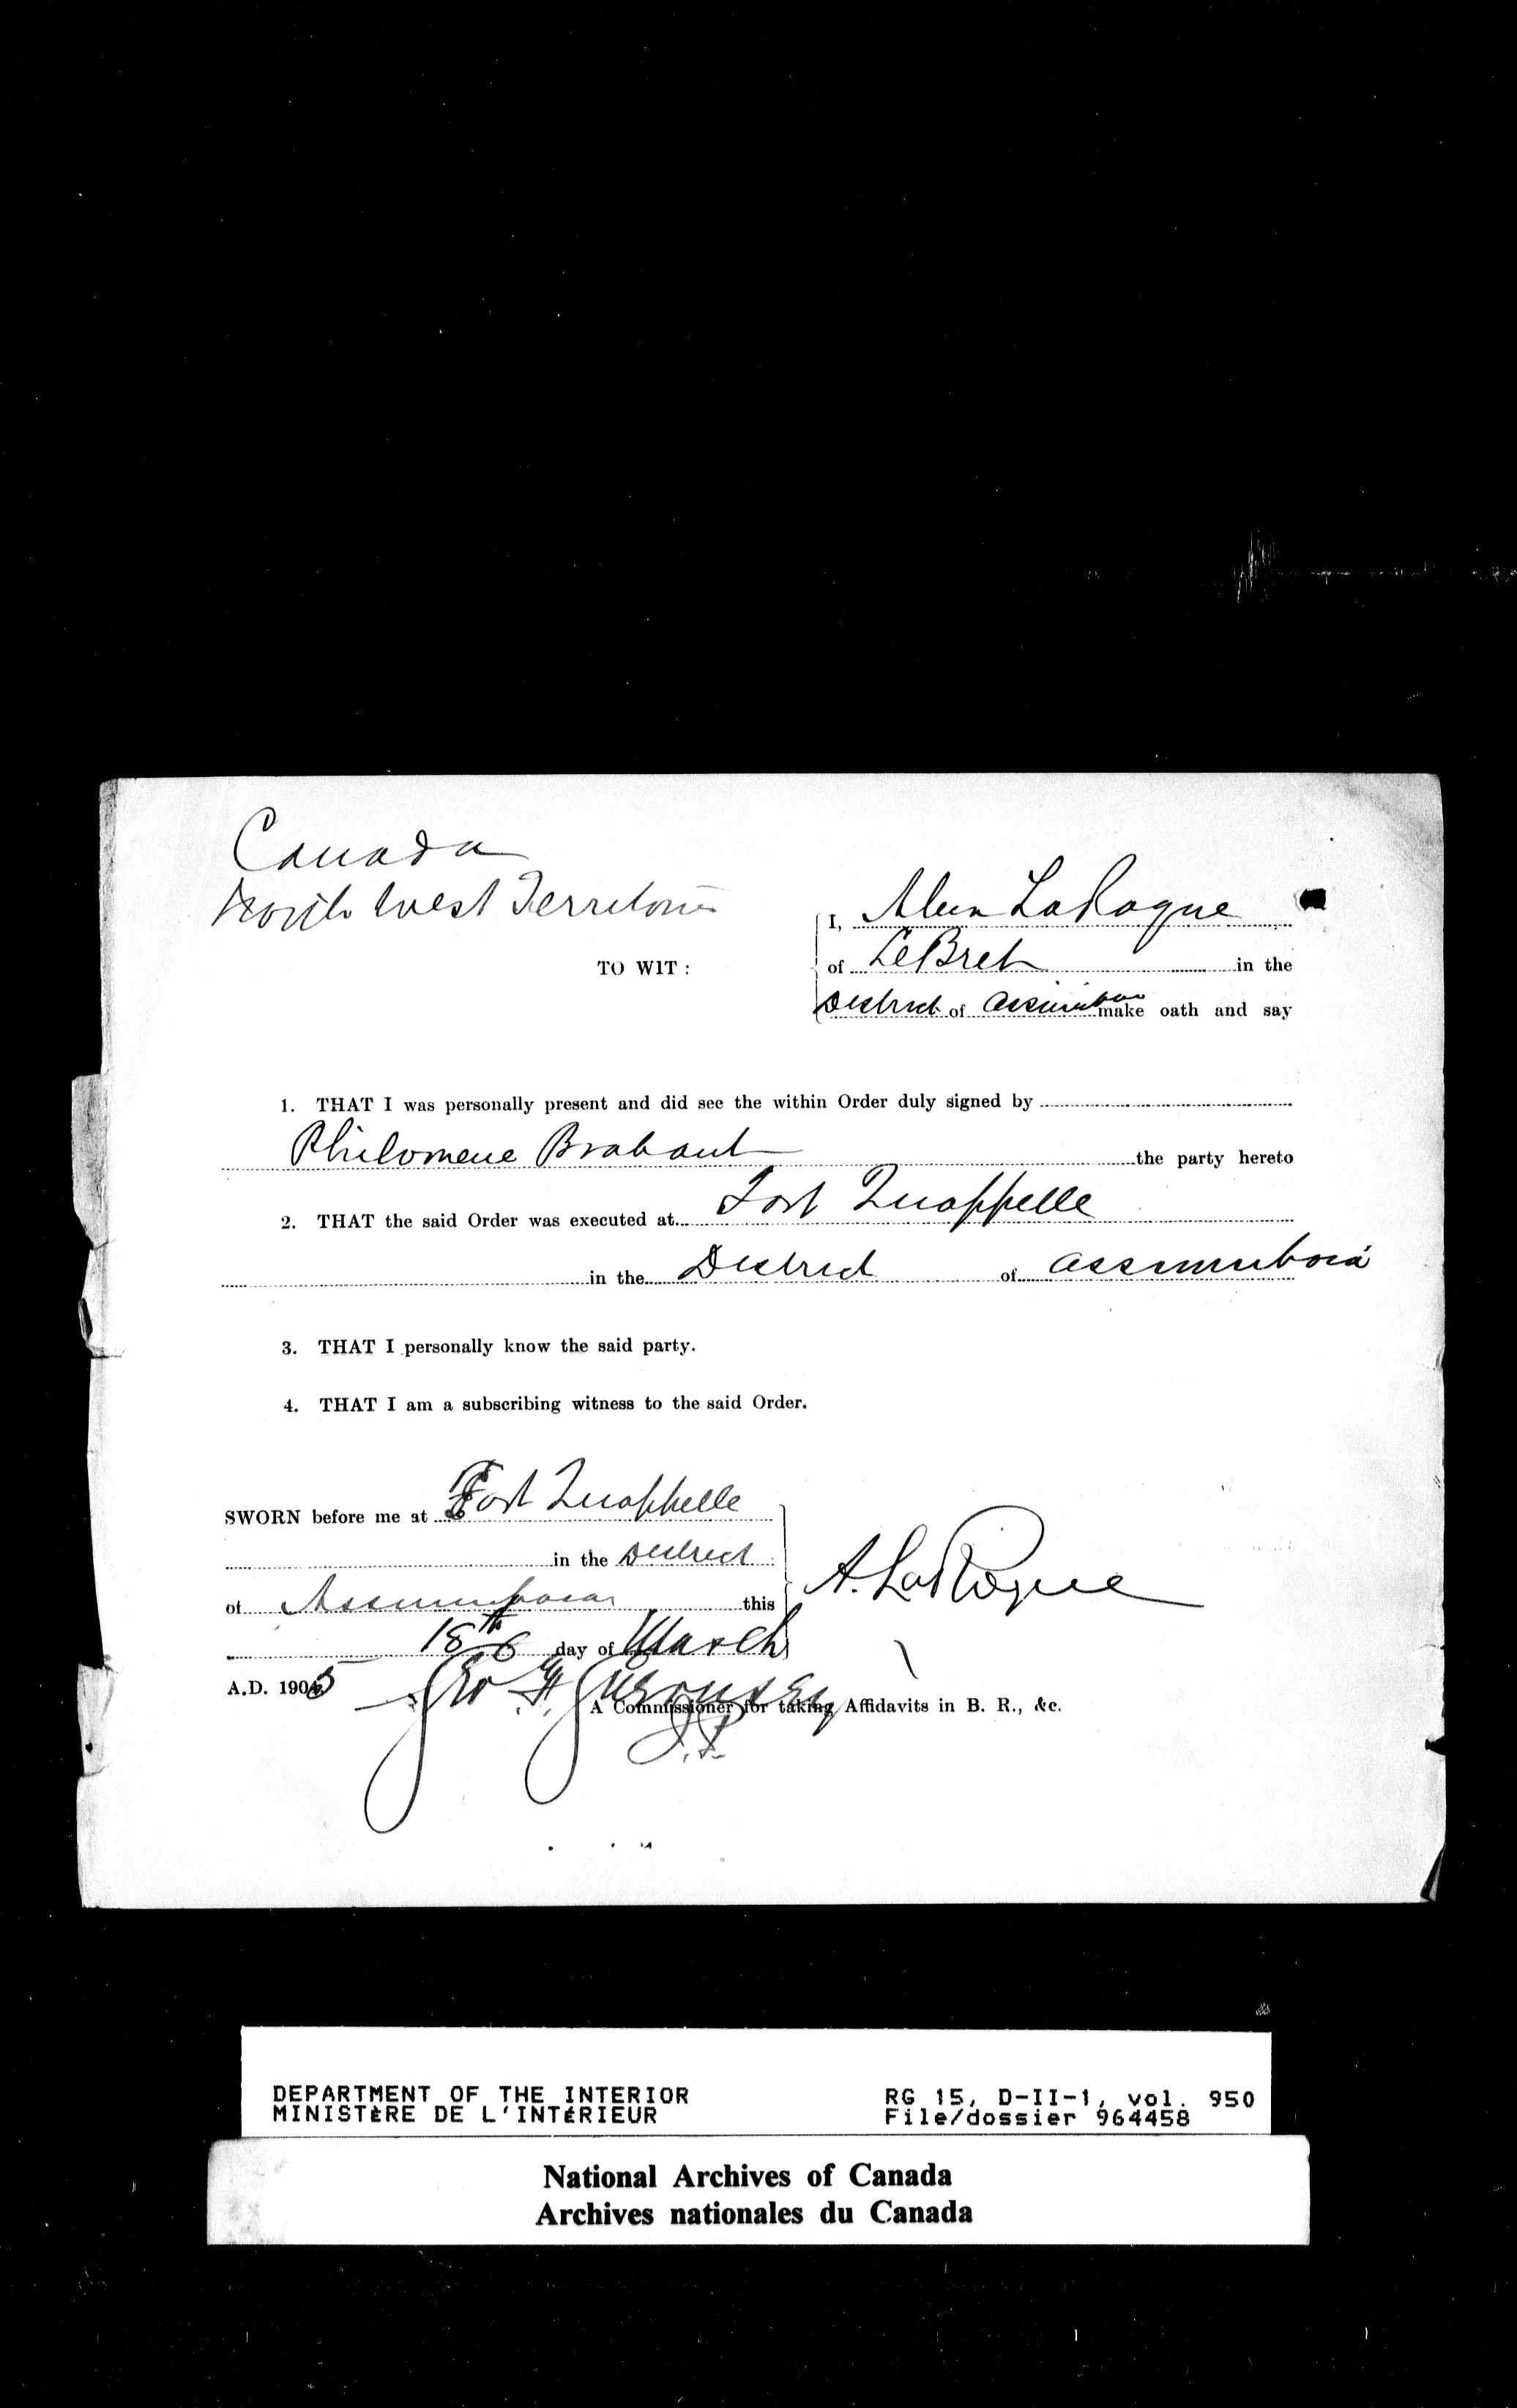 Canada
North West Territories
I, Alex LaRoque
TO WIT :
of LeBret in the
District of Assiniboia make oath and say
1. THAT I was personally present and did see the within Order duly signed by
Philomene Brabant the party hereto
2. THAT the said Order was executed at Fort Qu'appelle
in the District of Assiniboia
3. THAT I personally know the said party.
4. THAT I am a subscribing witness to the said Order.
SWORN before me at Fort Qu'appelle
in the District
of Assiniboia this
A. LaRoque
18th day of March
A.D. 1905
Geo H
A Commissioner for taking Affidavits in B. R., &c.
J.P.
DEPARTMENT OF THE INTERIOR
MINISTÈRE DE L'INTÉRIEUR
RG 15, D-II-1, vol. 950
File/dossier 964458
National Archives of Canada
Archives nationales du Canada